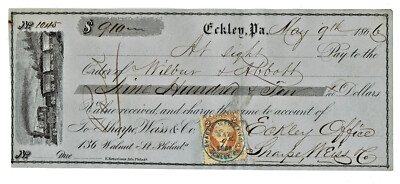 No. 1045 $ 910 Eckley, Pa. May 9th 1866
At sight Pay to the
Order of Wilbur & Abbott
Nine Hundred & Ten Dollars
Value received, and charge the same to account of
To Sharpe, Weiss & Co. Eckley Office
136 Walnut St. Philada. Sharpe Weiss & Co
No. Due